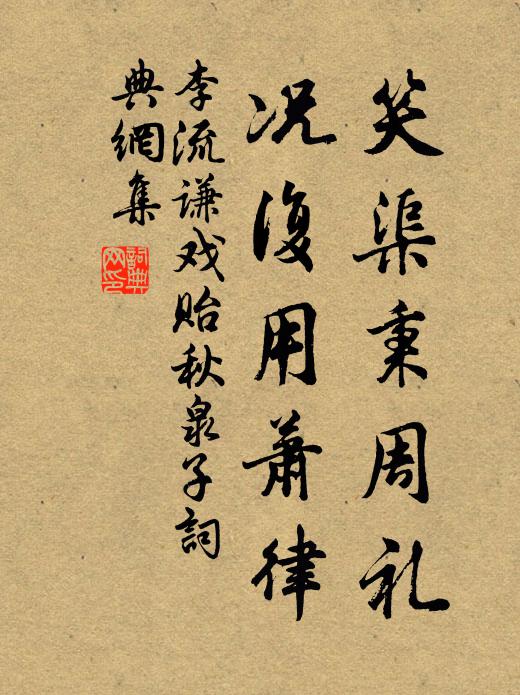 笑渠秉周礼
况復用萧律
李流谦戏贻秋泉子詞
典網集
詞典
网印